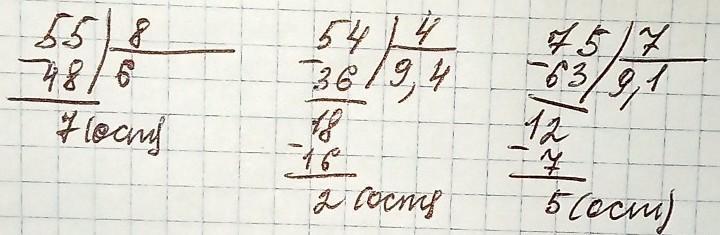 55 8
-48 6
7 (ост)
54 4
-36 9,4
18
-16
2 (ост)
75 7
-63 9,1
12
-7
5 (ост)